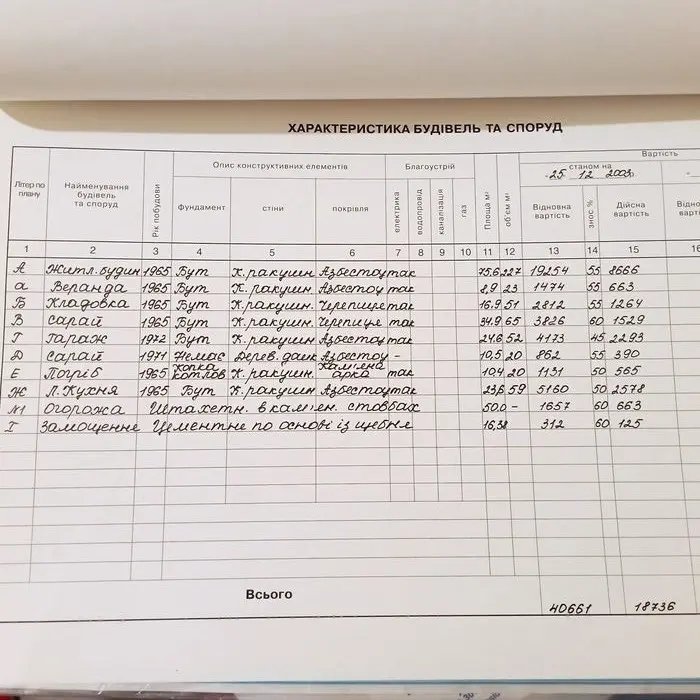 ХАРАКТЕРИСТИКА БУДІВЕЛЬ ТА СПОРУД
Літер по плану Найменування будівель та споруд Рік побудови Опис конструктивних елементів Благоустрій Площа м² об'єм м³ Вартість
фундамент стіни покрівля електрика водопровід каналізація газ станом на
25 12 2003
Відновна вартість знос % Дійсна вартість
1 2 3 4 5 6 7 8 9 10 11 12 13 14 15 16
А Житл.будин 1965 Бут К.ракушн Азбестоц так 75,6 227 19254 55 8666
а Веранда 1965 Бут К.ракушн. Азбестоц так 8,9 23 1474 55 663
Б Кладовка 1965 Бут К.ракушн. Черепице так 16,9 51 2812 55 1264
В Сарай 1965 Бут К.ракушн. Черепице так 34,9 65 3826 60 1529
Г Гараж 1972 Бут К.ракушн Азбестоц так 24,6 52 4173 45 2293
Д Сарай 1971 Немає Дерев. Азбестоц - 10,5 20 862 55 390
Е Погріб 1965 копка котлов К.ракушн. кам'яна арка так 10,4 20 1131 50 565
Ж Л.Кухня 1965 Бут К.ракушн Азбестоц так 23,6 59 5160 50 2578
№1 Огорожа Штахетн. в кам'ян. стовбах 50,0 - 1657 60 663
I Замощенне Цементне по основі із щебня 16,38 312 60 125
Всього 40661 18736